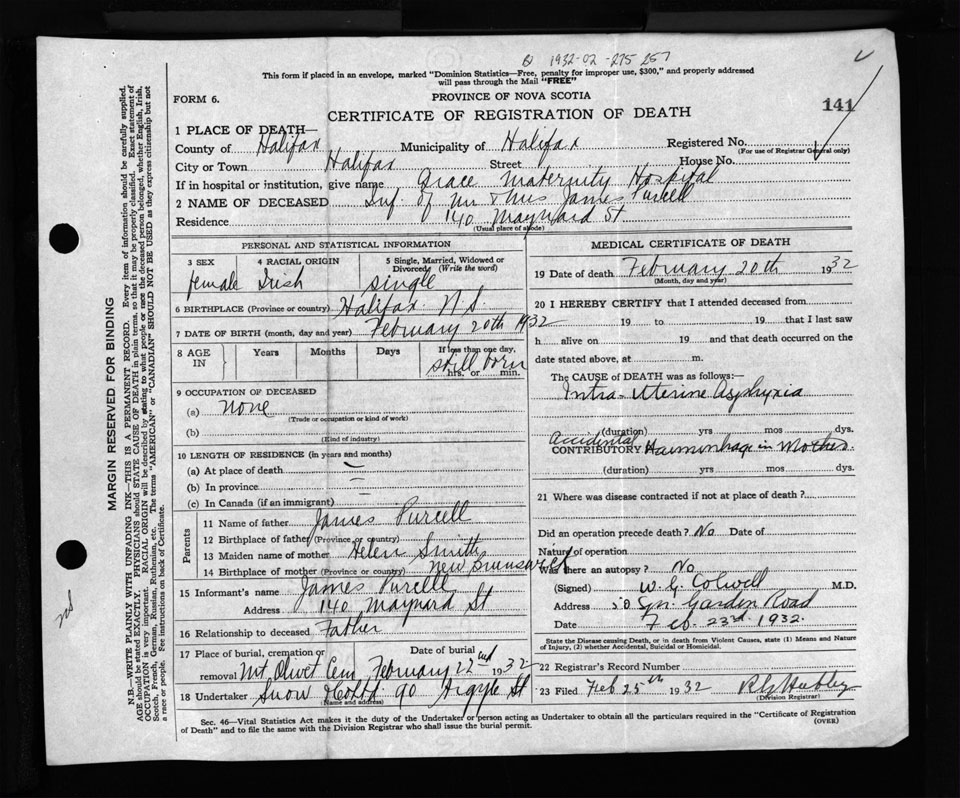 1932-02-275257
This form if placed in an envelope, marked "Dominion Statistics—Free, penalty for improper use, $300," and properly addressed
will pass through the Mail "FREE"
FORM 6.
PROVINCE OF NOVA SCOTIA
141
CERTIFICATE OF REGISTRATION OF DEATH
1 PLACE OF DEATH—
County of Halifax Municipality of Halifax Registered No.
(For use of Registrar General only)
City or Town Halifax Street House No.
If in hospital or institution, give name Grace Maternity Hospital
2 NAME OF DECEASED Inf. of Mr & Mrs James Purcell
Residence 140 Maynard St
(Usual place of abode)
PERSONAL AND STATISTICAL INFORMATION
3 SEX 4 RACIAL ORIGIN 5 Single, Married, Widowed or Divorced (Write the word)
female Irish single
6 BIRTHPLACE (Province or country) Halifax N.S.
7 DATE OF BIRTH (month, day and year) February 20th 1932
8 AGE IN Years Months Days If less than one day,
still born
hrs. or min.
9 OCCUPATION OF DECEASED
(a) none
(Trade or occupation or kind of work)
(b)
(Kind of industry)
10 LENGTH OF RESIDENCE (in years and months)
(a) At place of death
(b) In province
(c) In Canada (if an immigrant)
Parents
11 Name of father James Purcell
12 Birthplace of father (Province or country)
13 Maiden name of mother Helen Smith
14 Birthplace of mother (Province or country) New Brunswick
15 Informant's name James Purcell
Address 140 Maynard St
16 Relationship to deceased Father
17 Place of burial, cremation or removal Mt Olivet Cem Date of burial February 22nd 1932
18 Undertaker Snow 90 Argyle St
(Name and address)
MEDICAL CERTIFICATE OF DEATH
19 Date of death February 20th 1932
(Month, day and year)
20 I HEREBY CERTIFY that I attended deceased from
19 to 19 that I last saw
h alive on 19 and that death occurred on the
date stated above, at m.
The CAUSE of DEATH was as follows:—
Intra-Uterine Asphyxia
(duration) yrs mos dys.
Accidental
CONTRIBUTORY Haemorrhage in Mother
(duration) yrs mos dys.
21 Where was disease contracted if not at place of death?
Did an operation precede death? No Date of
Nature of operation
Was there an autopsy? No
(Signed) W. G. Colwell M.D.
Address 50 Spn. Garden Road
Date Feb. 23rd 1932.
State the Disease causing Death, or in death from Violent Causes, state (1) Means and Nature
of Injury, (2) whether Accidental, Suicidal or Homicidal.
22 Registrar's Record Number
23 Filed Feb 25th 1932
(Division Registrar)
Sec. 46—Vital Statistics Act makes it the duty of the Undertaker or person acting as Undertaker to obtain all the particulars required in the "Certificate of Registration
of Death" and to file the same with the Division Registrar who shall issue the burial permit.
(OVER)
MARGIN RESERVED FOR BINDING
N.B.—WRITE PLAINLY WITH UNFADING INK—THIS IS A PERMANENT RECORD. Every item of information should be carefully supplied.
AGE should be stated EXACTLY. PHYSICIANS should STATE CAUSE OF DEATH in plain terms, so that it may be properly classified. Exact statement of
OCCUPATION is very important. RACIAL ORIGIN will be described by stating to what people or race the deceased person belonged, whether English, Irish,
Scotch, French, German, Russian, Ruthenian, etc. The terms "AMERICAN" or "CANADIAN" SHOULD NOT BE USED as they express citizenship but not
a race or people. Fee instructions on back of Certificate.